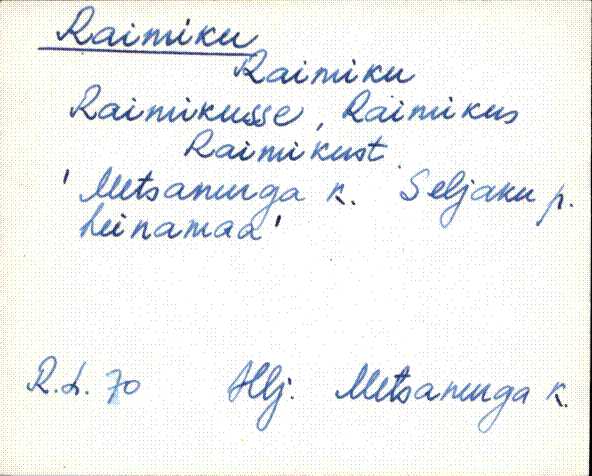 Raimiku
Raimiku
Raimikusse, Raimikus
Raimikust
'Metsanurga k. Seljaku p.
heinamaa'
R.L. 70 Hlj. Metsanurga k.